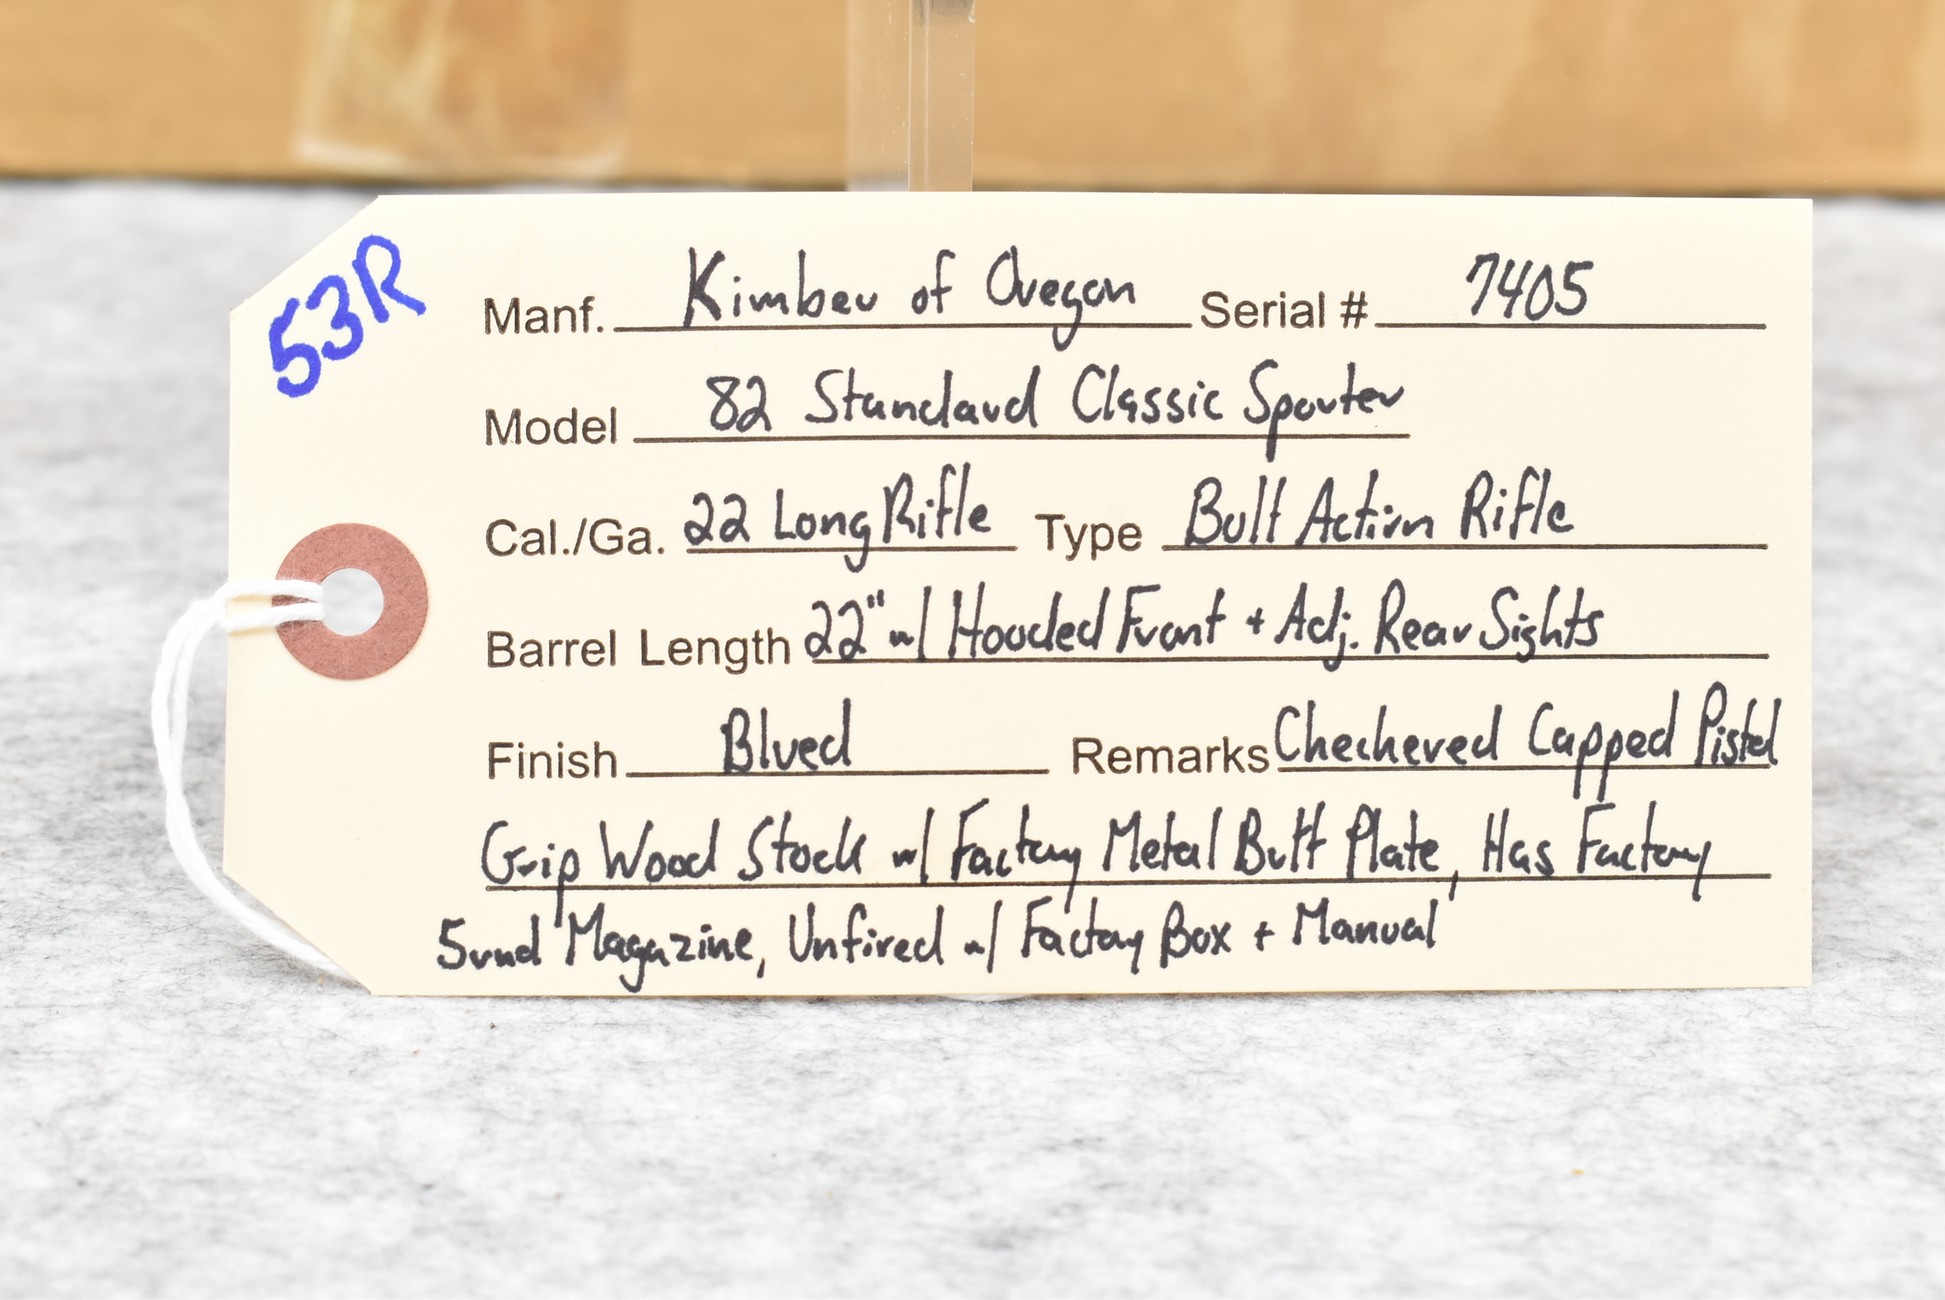 53R
Manf. Kimber of Oregon Serial # 7405
Model 82 Standard Classic Sporter
Cal./Ga. 22 Long Rifle Type Bolt Action Rifle
Barrel Length 22" w/ Hooded Front + Adj. Rear Sights
Finish Blued Remarks Checkered Capped Pistol
Grip Wood Stock w/ Factory Metal Butt Plate, Has Factory
5rnd Magazine, Unfired w/ Factory Box + Manual